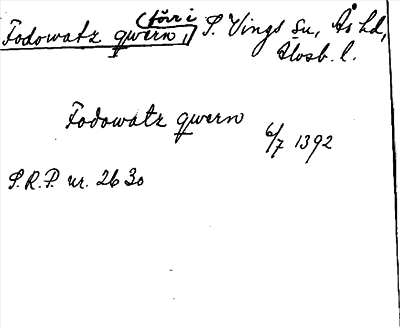 Fodowatz qwern, (förr i) S. Vings su, Ås hd,
Älvsb. l.
Fodowatz qwern
6/7 1392
S.R.P. nr. 2630